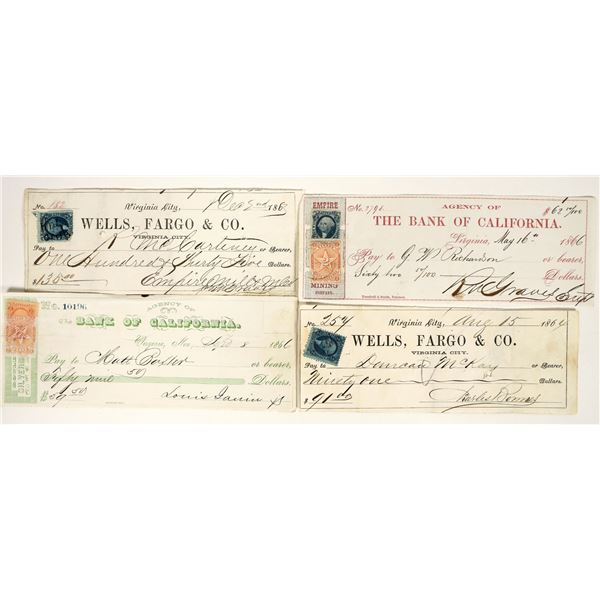 No. 182 Virginia City, Dec 2nd 186
WELLS, FARGO & CO.
VIRGINIA CITY.
Pay to R McCartney or Bearer,
One Hundred & Thirty Five Dollars.
$135.00 Empire
EMPIRE
MINING
COMPANY.
No. 2791. AGENCY OF $62
THE BANK OF CALIFORNIA.
Virginia, May 16th 1866
Pay to G. W. Richardson or bearer,
Sixty two /100 Dollars.
R N Graves Supt
No. 10196 AGENCY OF
THE BANK OF CALIFORNIA.
Virginia, Nev., Sept 8 1866
Pay to Matt Baxter or bearer,
Fifty nine 50 Dollars.
$59 50 Louis Janin Jr
No. 254 Virginia City, Aug 15 1864
WELLS, FARGO & CO.
VIRGINIA CITY.
Pay to Duncan McKay or Bearer,
Ninety one Dollars.
$91.00 Charles Bonner